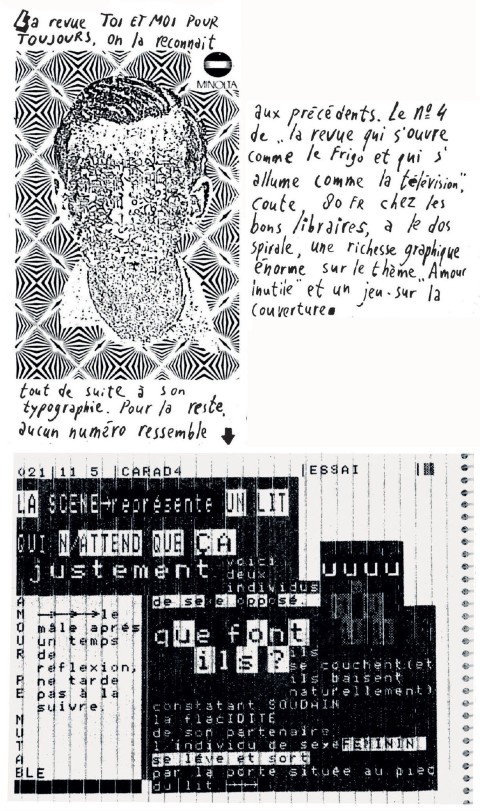 La revue TOI ET MOI POUR
TOUJOURS, on la reconnait
MINOLTA
tout de suite à son
typographie. Pour la reste,
aucun numéro ressemble
aux précédents. Le Nº 4
de „la revue qui s'ouvre
comme le Frigo et qui s'
allume comme la télévision",
coute, 80 FR chez les
bons libraires, a le dos
spirale, une richesse graphique
énorme sur le thème „Amour
inutile" et un jeu-sur la
couverture
021 11 5 CARAD4 ESSAI
LA SCENE→représente UN LIT
QUI N/ATTEND QUE ÇA
justement
voici
deux
individus
de sexe opposé.
uuuu
que font
ils ?
ils
se couchent(et
ils baisent
naturellement)
constatant SOUDAIN
la flacIDITE
de son partenaire
l'individu de sexe FEMININ
se lève et sort
par la porte située au pied
du lit
le
mâle aprés
un temps
de
réflexion,
ne tarde
pas à la
suivre.
A
M
O
U
R
P
E
N
U
T
A
BLE